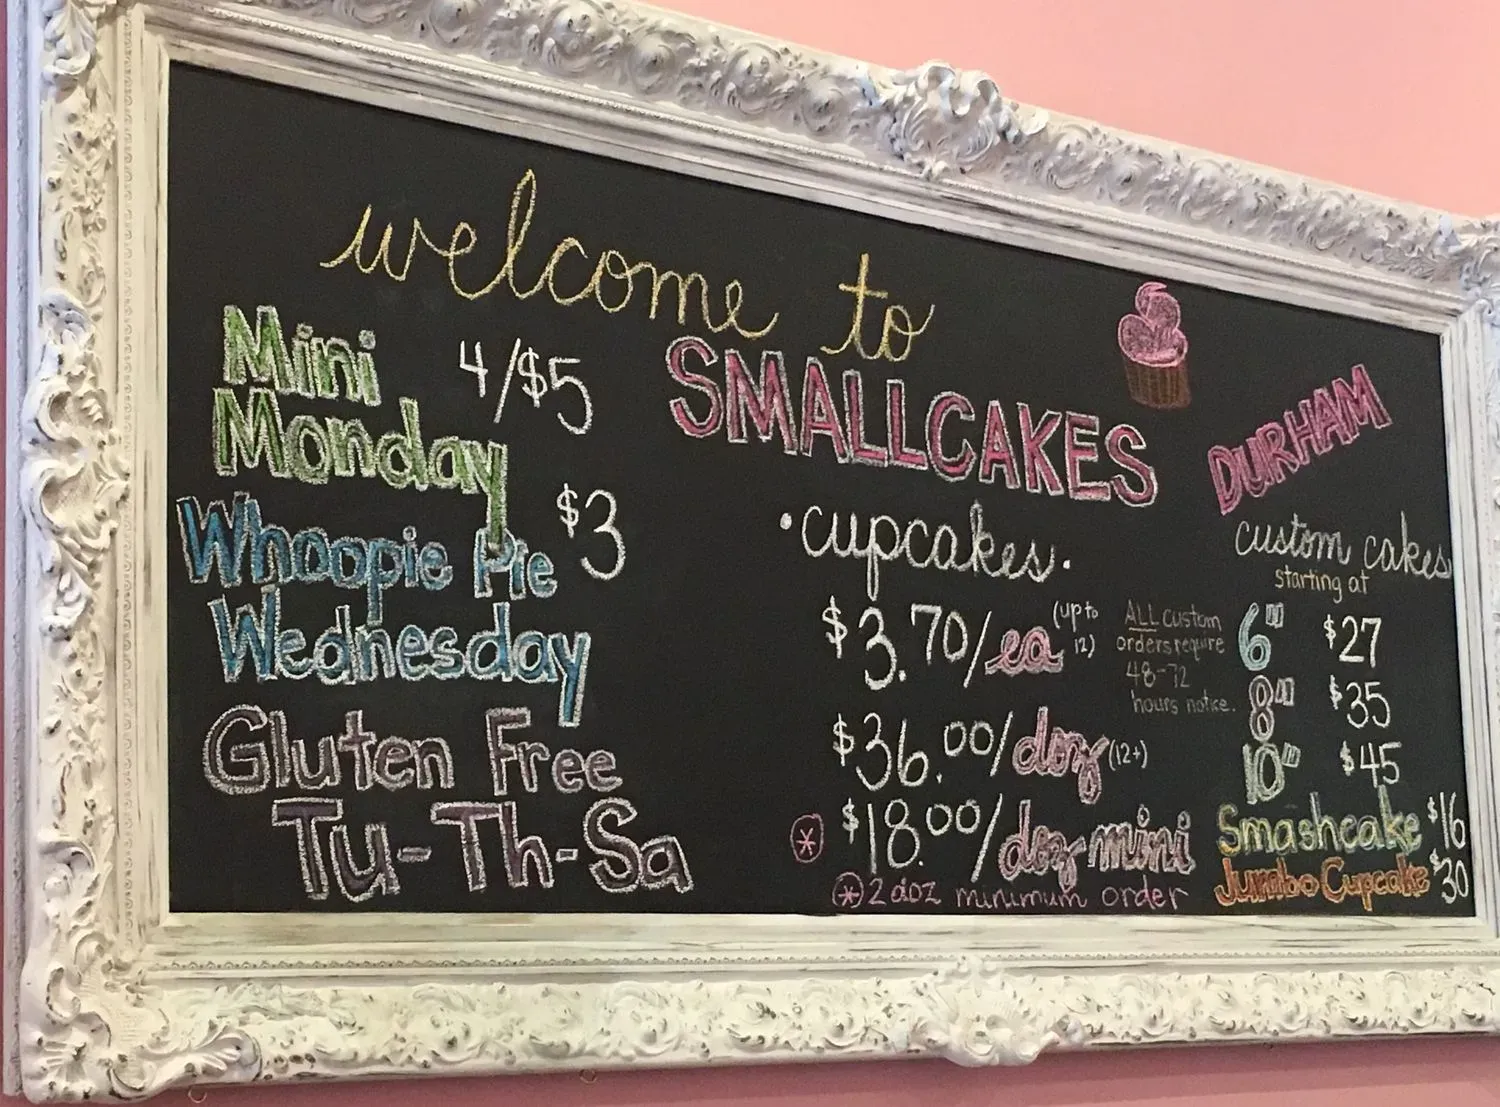 welcome to
SMALLCAKES
DURHAM
Mini
Monday
4/$5
Whoopie Pie
Wednesday
$3
Gluten Free
Tu-Th-Sa
•cupcakes•
$3.70/ea (up to 12)
$36.00/doz (12+)
* $18.00/doz mini
* 2 doz minimum order
ALL custom
orders require
48-72
hours notice.
custom cakes
starting at
6" $27
8" $35
10" $45
Smashcake $16
Jumbo Cupcake $30